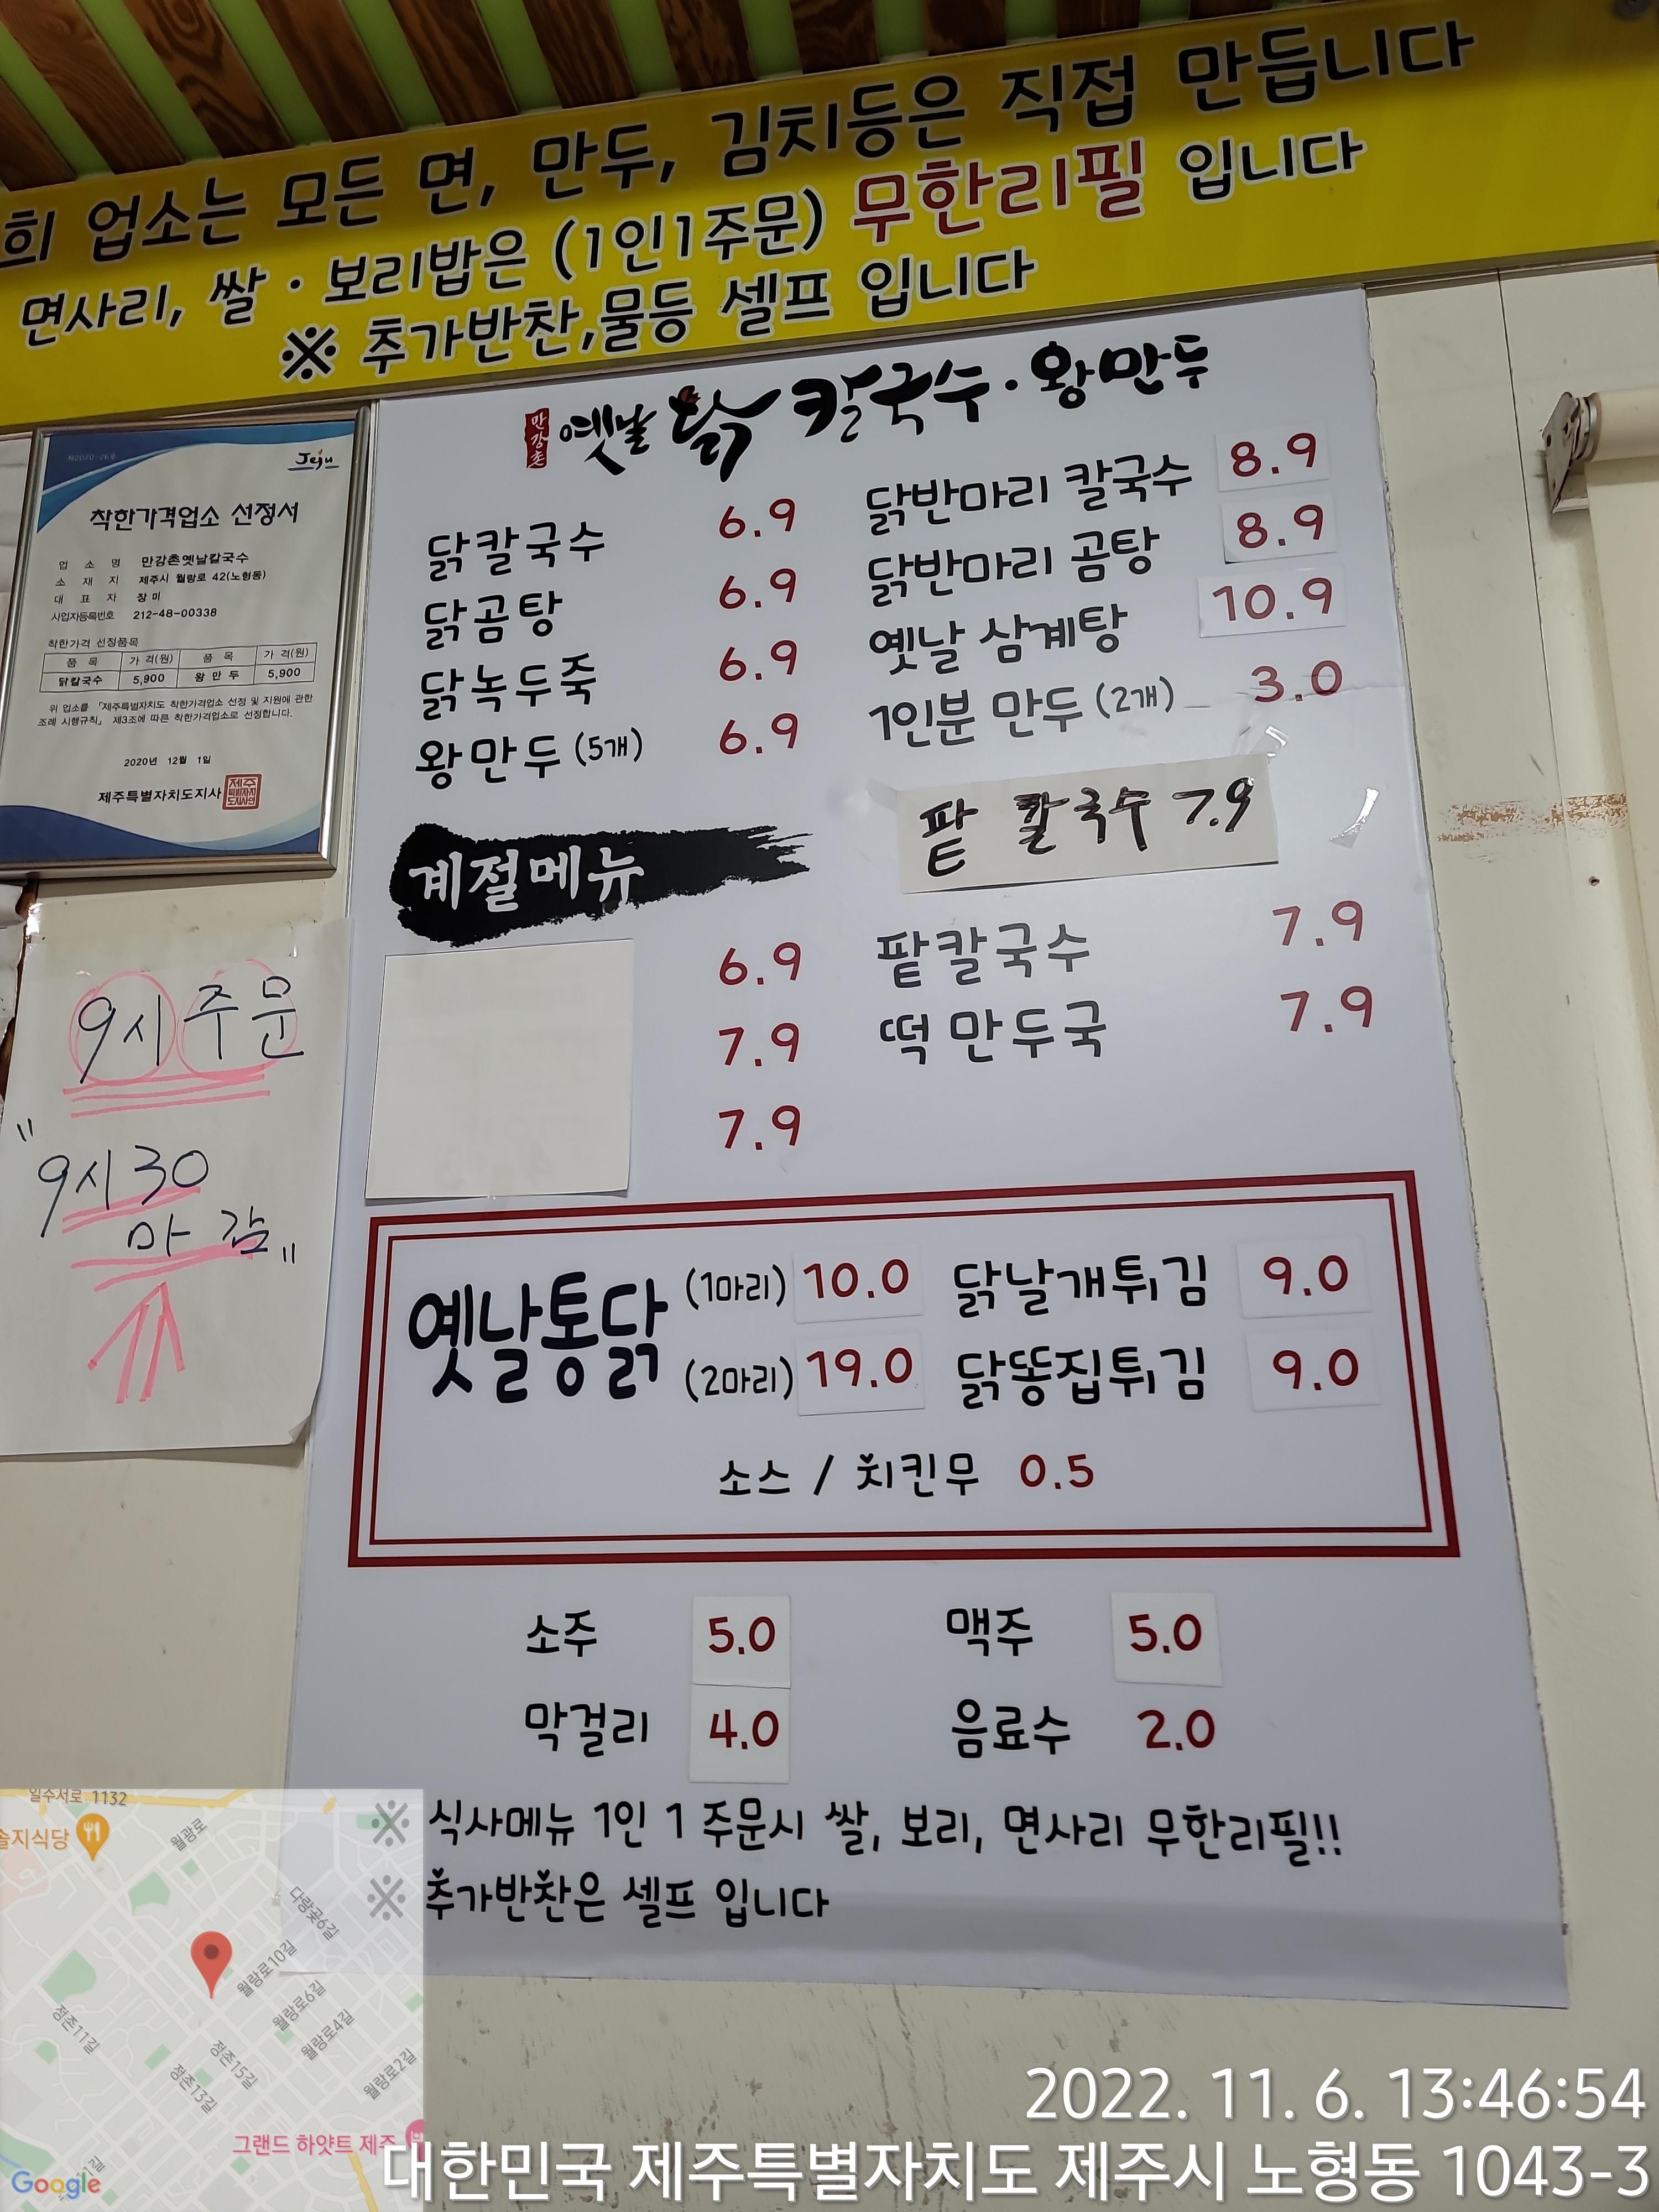 희 업소는 모든 면, 만두, 김치등은 직접 만듭니다
면사리, 쌀 · 보리밥은 (1인1주문) 무한리필 입니다
※ 추가반찬,물등 셀프 입니다
제2020-26호
Jeju
착한가격업소 선정서
업 소 명 만강촌옛날칼국수
소 재 지 제주시 월랑로 42(노형동)
대 표 자 장 미
사업자등록번호 212-48-00338
착한가격 선정품목
품 목 가 격(원) 품 목 가 격(원)
닭칼국수 5,900 왕 만 두 5,900
위 업소를 「제주특별자치도 착한가격업소 선정 및 지원에 관한
조례 시행규칙」 제3조에 따른 착한가격업소로 선정합니다.
2020년 12월 1일
제주특별자치도지사
9시 주문
"9시 30
마 감"
만강촌 옛날 닭 칼국수 · 왕만두
닭칼국수 6.9 닭반마리 칼국수 8.9
닭곰탕 6.9 닭반마리 곰탕 8.9
닭녹두죽 6.9 옛날 삼계탕 10.9
왕만두 (5개) 6.9 1인분 만두 (2개) 3.0
팥 칼국수 7.9
계절메뉴
6.9 팥칼국수 7.9
7.9 떡만두국 7.9
7.9
옛날통닭 (1마리) 10.0 닭날개튀김 9.0
(2마리) 19.0 닭똥집튀김 9.0
소스 / 치킨무 0.5
소주 5.0 맥주 5.0
막걸리 4.0 음료수 2.0
※ 식사메뉴 1인 1 주문시 쌀, 보리, 면사리 무한리필!!
※ 추가반찬은 셀프 입니다
일주서로 1132
솔지식당
월광로
다랑곶6길
월랑로10길
월랑로6길
월랑로4길
월랑로2길
정존11길
정존15길
정존13길
그랜드 하얏트 제주
Google
2022. 11. 6. 13:46:54
대한민국 제주특별자치도 제주시 노형동 1043-3